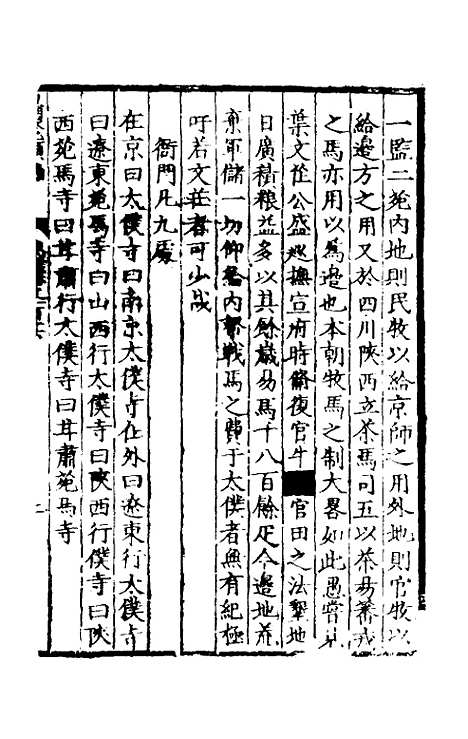 一監二苑內地則民牧以給京師之用外地則官牧以
給邊方之用又於四川陝西立茶馬司五以茶易蕃戎
之馬亦用以為邊也本朝牧馬之制大畧如此愚嘗見
葉文莊公盛巡撫宣府時脩復官牛官田之法墾地
日廣積粮益多以其餘歲易馬千八百餘疋今邊地荒
棄軍儲一切仰給內帑戰馬之費于太僕者無有紀極
吁若文莊者可少哉
衙門凡九處
在京曰太僕寺曰南京太僕寺在外曰遼東行太僕寺
曰遼東苑馬寺曰山西行太僕寺曰陝西行僕寺曰陝
西苑馬寺曰甘肅行太僕寺曰甘肅苑馬寺